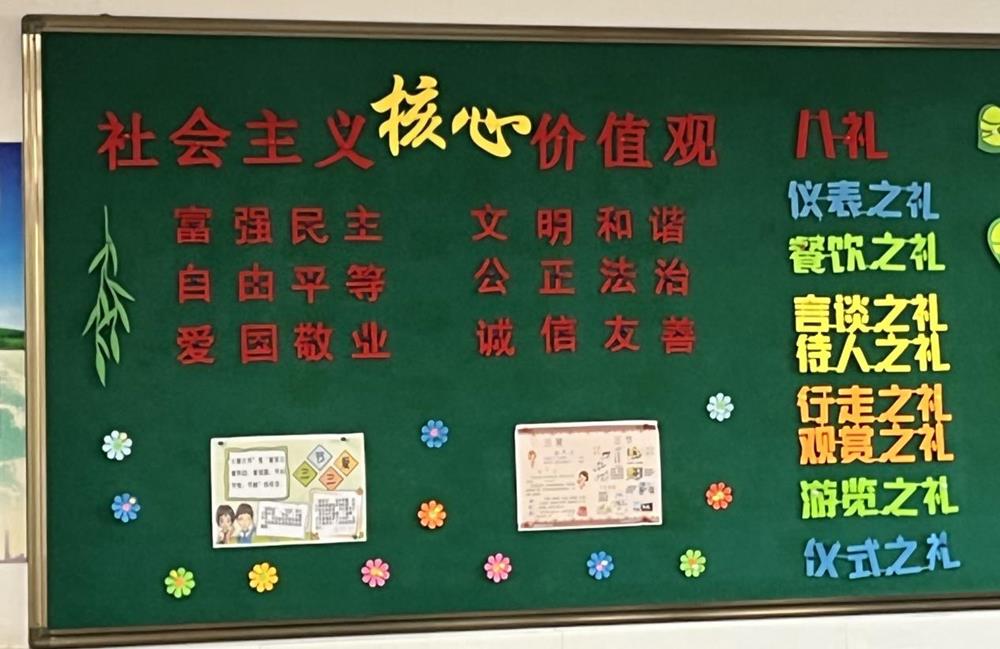 社会主义核心价值观
富强民主 文明和谐
自由平等 公正法治
爱国敬业 诚信友善
八礼
仪表之礼
餐饮之礼
言谈之礼
待人之礼
行走之礼
观赏之礼
游览之礼
仪式之礼
三节
三爱